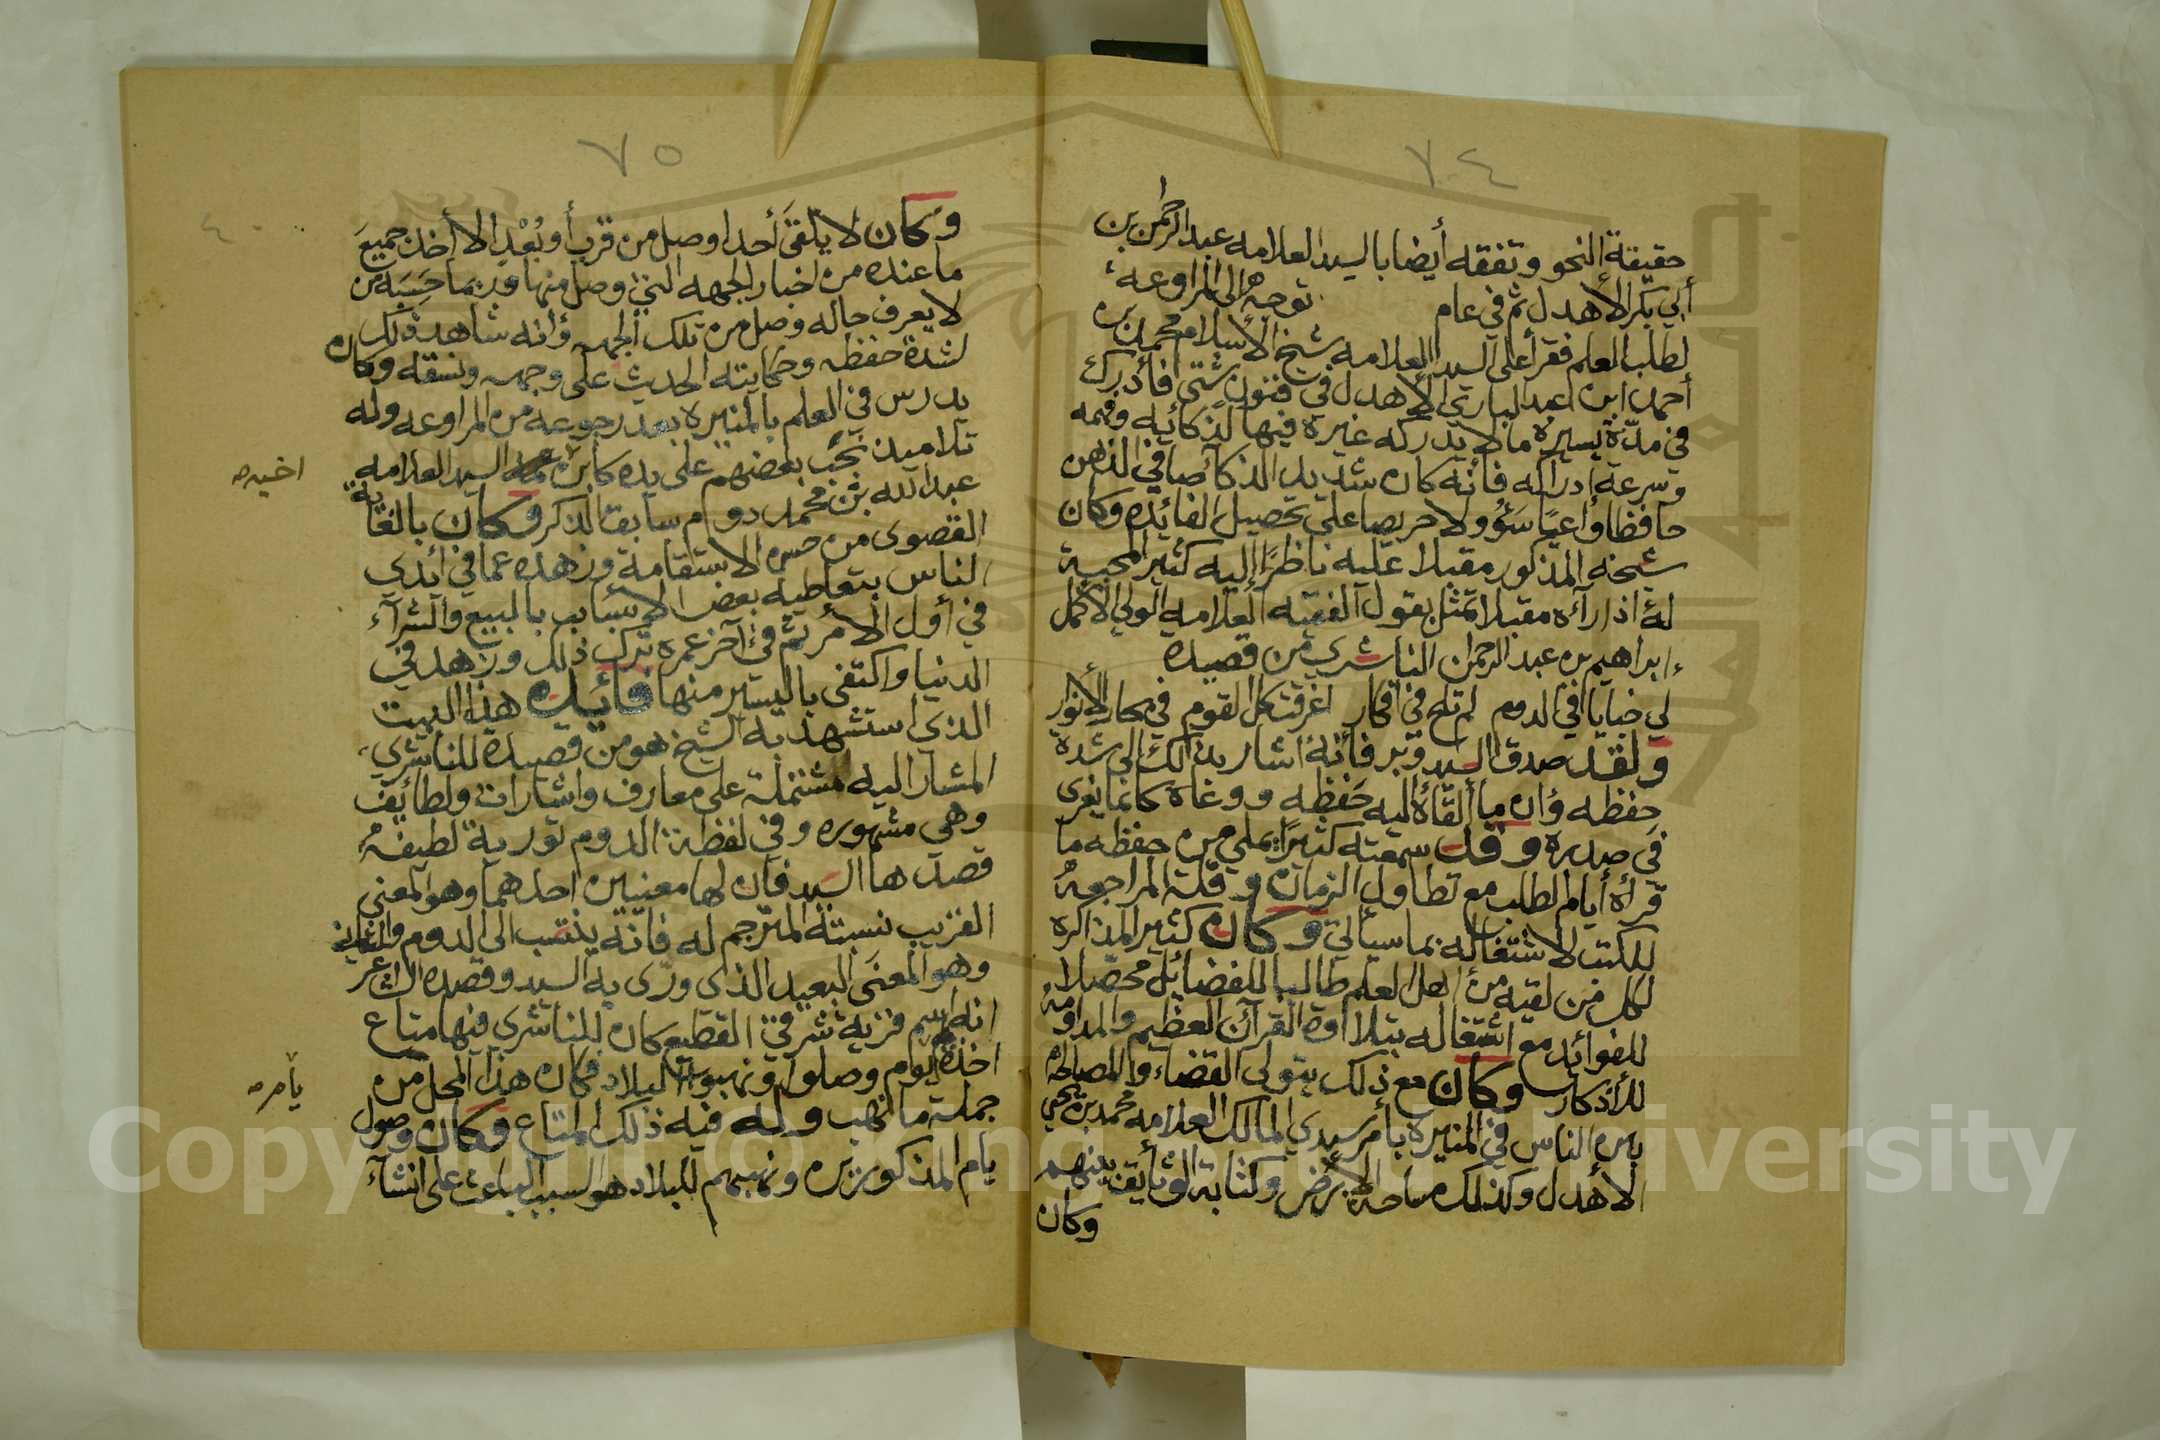 ٧٤
حقيقة النحو وتفقه أيضا بالسيد العلامه عبدالرحمن بن
أبي بكر الأهدل ثم في عام توجه الى المراوعه
لطلب العلم فقرأ على السيد العلامه شيخ الأسلام محمد بن
أحمد ابن عبدالباري الأهدل في فنون شتى فأدرك
في مدة يسيره ما لا يدركه غيره فيها لذكائه وفهمه
وسرعة ادراكه فأنه كان شديد الذكآ صافي الذهن
حافظا واعيا سؤولا حريصا على تحصيل الفائده وكان
شيخه المذكور مقبلا عليه ناظرا إليه كثير المحبة
له اذا رآه مقبلا تمثل بقول الفقيه العلامه الولي الأكمل
ابراهيم بن عبد الرحمن الناشري من قصيده
لي خبايا في الدوم لم تلج في أفكار اغرقت كل القوم في بحار الأنوار
ولقد صدق السيد وبر فأنه اشار بذالك الى شدة
حفظه وان ما ألقاه اليه حفظه ووعاه كانما يغرى
في صدره وقد سمعته كثيرا يملي من حفظه ما
قرأه أيام الطلب مع تطاول الزمان وقلة المراجعه
للكتب لاشتغاله بما سيأتي وكان كثير المذاكره
لكل من لقيه من اهل العلم طالبا للفضائل محصلا
للفوائد مع اشتغاله بتلاوة القرآن العظيم والمداومة
للأذكار وكان مع ذلك يتولى القضاء والمصالحه
بين الناس في المنيره بأمر سيدي المالك العلامه محمد بن يحيى
الأهدل وكذلك مساحة الأرض وكتابة الوثايق بينهم
وكان
٧٥
٤٠
وكان لا يلقى أحدا وصل من قرب أو بعد الا أخذ جميع
ما عنده من اخبار الجهه التي وصل منها وربما حسبه من
لا يعرف حاله وصل من تلك الجهه وأنه شاهد ذلك
لشدة حفظه وحكايته الحديث على وجهه ونسقه وكان
يدرس في العلم بالمنيره بعد رجوعه من المراوعه وله
تلاميذ نجب بعضهم على يده كابن السيد العلامه
اخيه صح
عبدالله بن محمد دوم سابق الذكر وكان بالغاية
القصوى من حسن الاستقامة وزهده عما في أيدي
الناس بتعاطيه بعض الأسباب بالبيع والشرآء
في أول الأمر ثم في آخر عمره ترك ذلك وزهد في
الدنيا واكتفى باليسير منها فائده هذا البيت
الذي استشهد به الشيخ هو من قصيدة للناشري
المشار اليه مشتملة على معارف واشارات ولطائف
وهي مشهوره وفي لفظة الدوم تورية لطيفه
قصدها السيد فان لها معنيين احدهما وهو المعنى
القريب نسبته المترجم له فانه ينتسب الى الدوم والثاني
وهو المعنى البعيد الذي ورى به السيد وقصده الشاعر
انه اسم قرية شرقي القطيع كان للناشرى فيها متاع
اخذه يوم وصلوا ونهبوا البلاد فكان هذا المحل من
يام صح
جملة ما نهب وله فيه ذلك المتاع وكان وصول
يام المذكورين ونهبهم للبلاد هو السبب الباعث على انشآء
Copyright © King Saud University